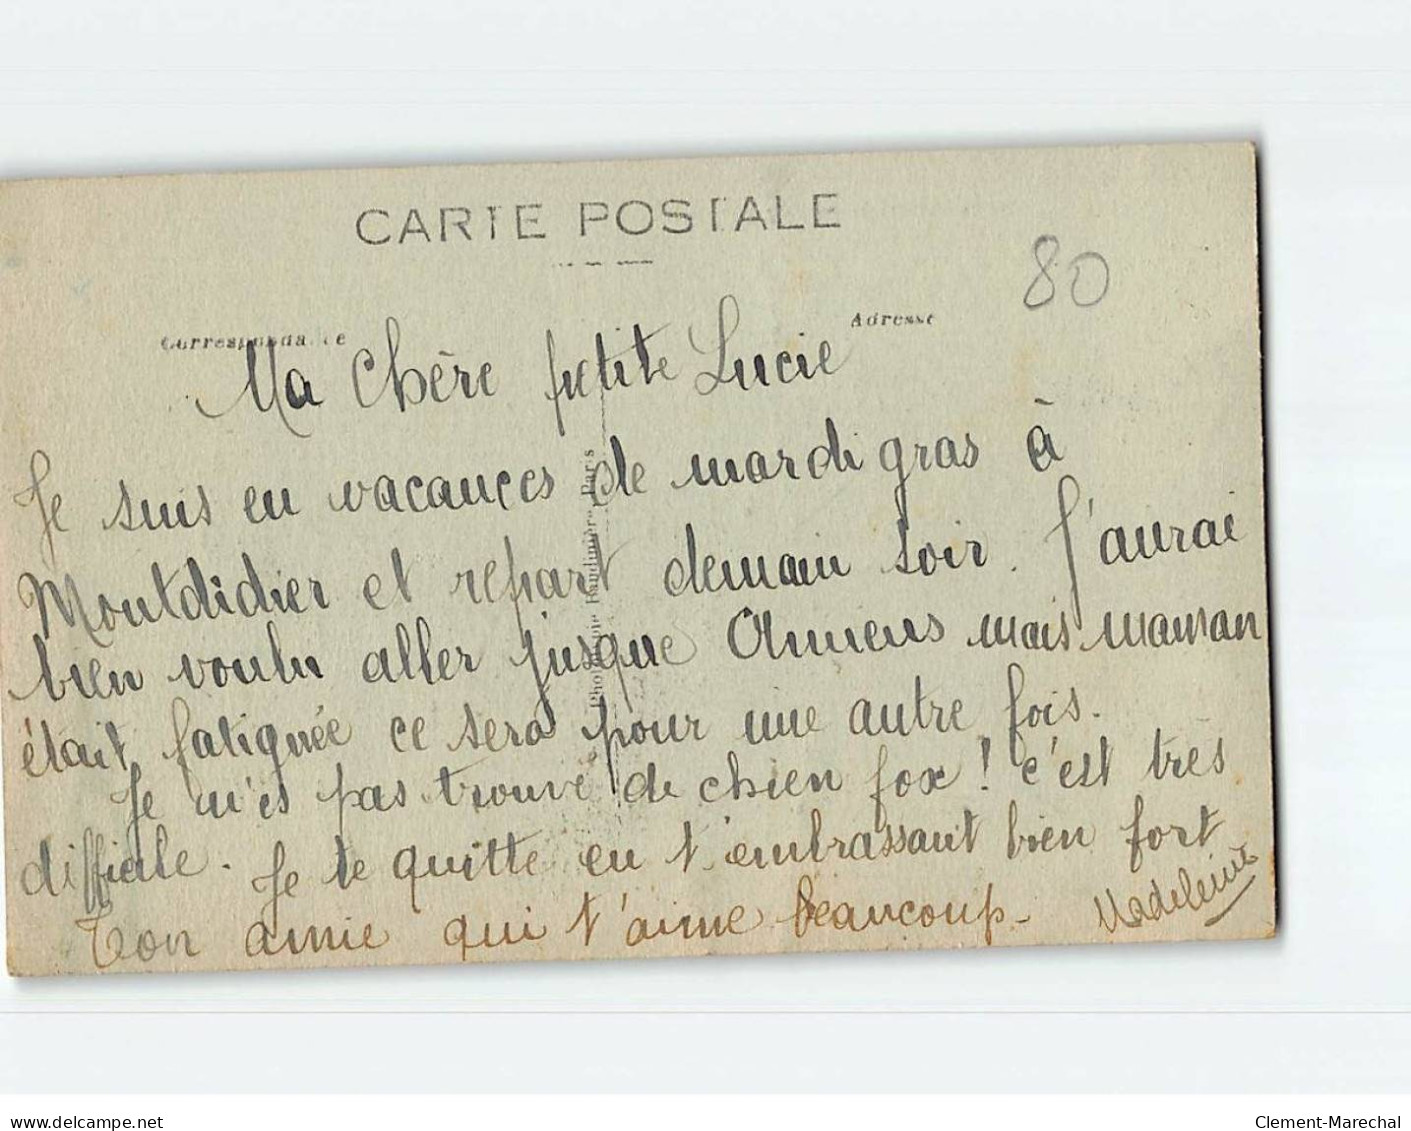 CARTE POSTALE
80
Correspondance
Adresse
Ma Chère petite Lucie
Je suis en vacances de mardi gras à
Montdidier et repart demain soir. J'aurai
bien voulu aller jusque Amiens mais maman
était fatiguée ce sera pour une autre fois.
Je n'ei pas trouvé de chien fox ! c'est très
difficile. Je te quitte en t'embrassant bien fort
Ton amie qui t'aime beaucoup - Madeleine
Baudinière Paris
delcampe.net
Clement-Marechal